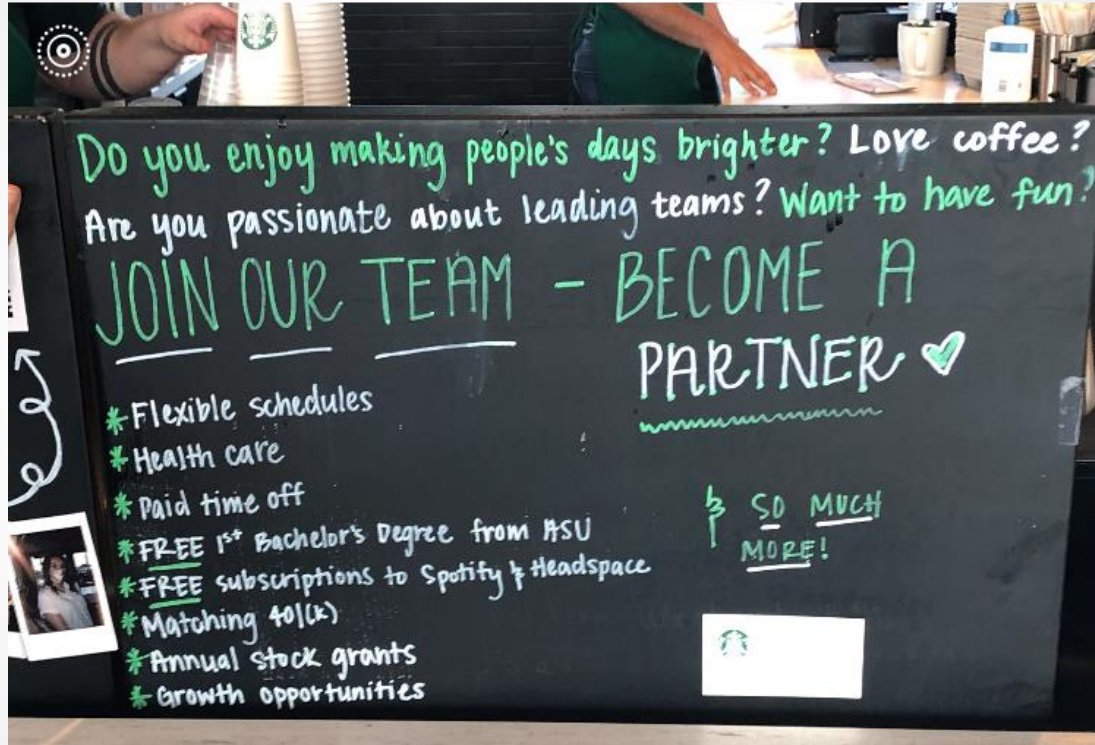 Do you enjoy making people's days brighter? Love coffee?
Are you passionate about leading teams? Want to have fun?
JOIN OUR TEAM - BECOME A
PARTNER
* Flexible schedules
* Health care
* Paid time off
* FREE 1st Bachelor's Degree from ASU
* FREE subscriptions to Spotify & Headspace
* Matching 401(k)
* Annual stock grants
* Growth opportunities
& SO MUCH
MORE!